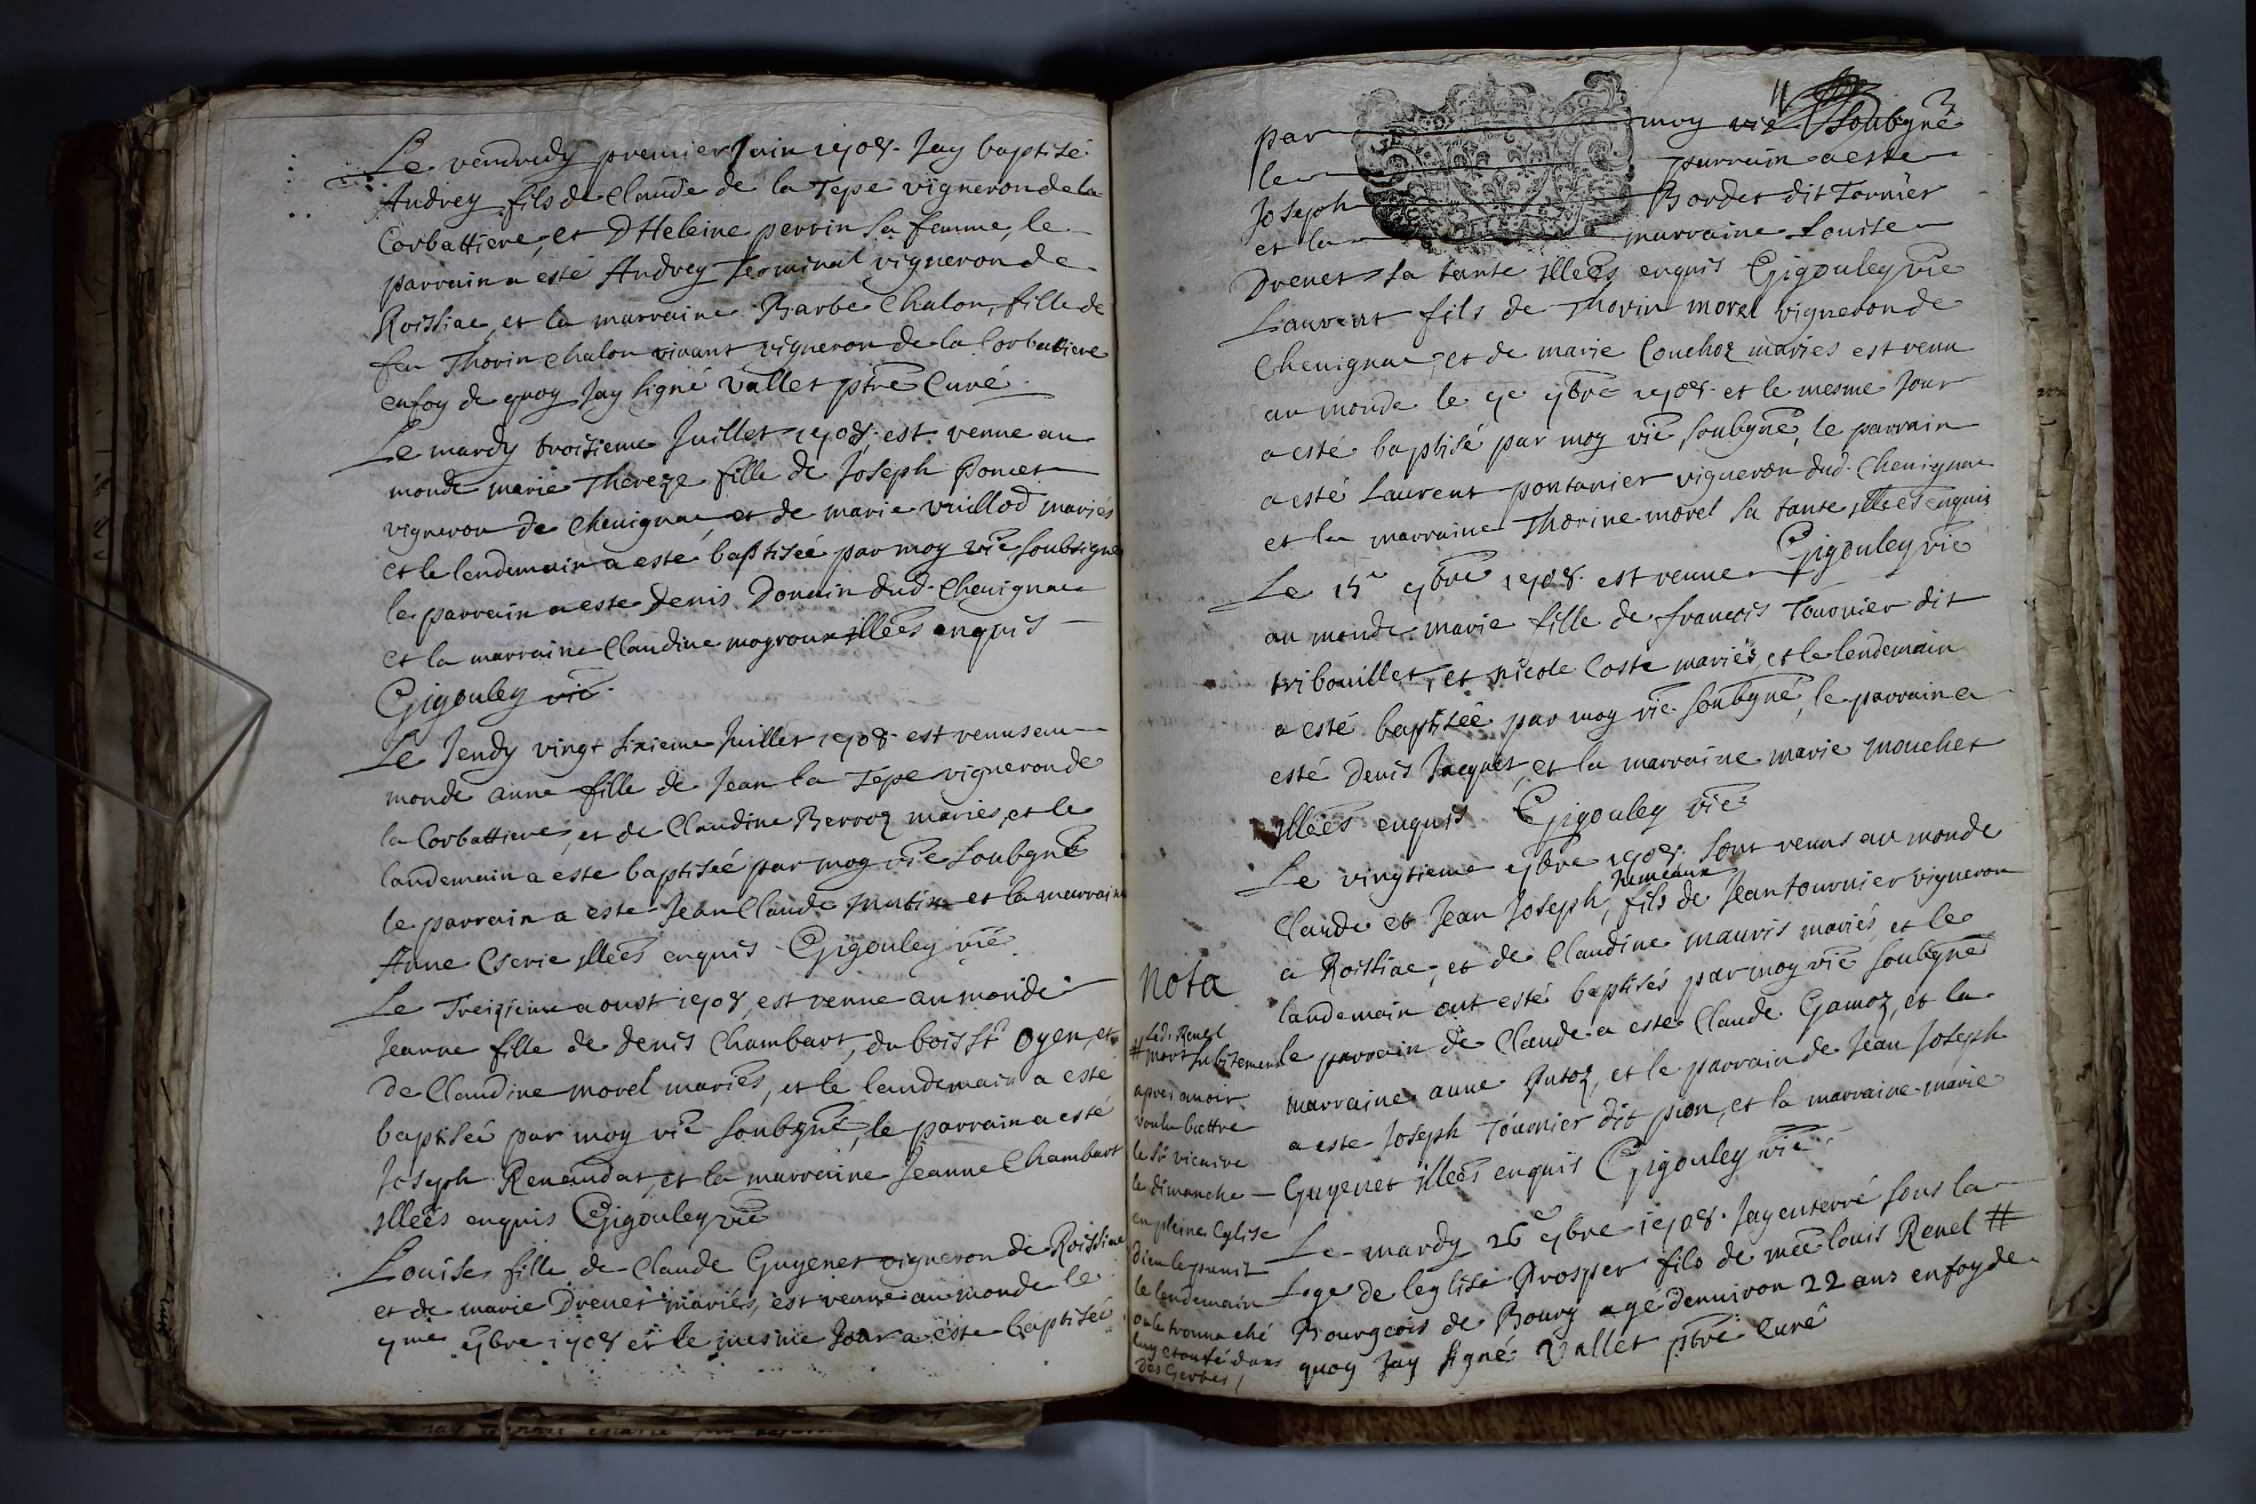 Le vendredy premier Juin 1708. Jay baptisé
Andrey fils de Claude de la Tepe vigneron de la
Corbattiere, et D'Heleine perrin sa femme, le
parrain a esté Andrey Terminal vigneron de
Roissiac, et la marraine Barbe Chalon, fille de
feu Thorin Chalon vivant vigneron de la Corbattiere
en foy de quoy Jay signé Vallet ptre Curé.
Le mardy troisieme Juillet 1708. est venue au
monde marie Thereze fille de Joseph Poncet
vigneron de Chevignac et de marie vuillod mariés
et le lendemain a esté baptisée par moy vic soubsigné
le parrain a este Denis Donain dud. Chevignac
et la marraine Claudine mogroux illées enquis
Gigouley vic.
Le Jeudy vingt sixieme Juillet 1708 est venus au
monde anne fille de Jean la Tepe vigneron de
la Corbattiere, et de Claudine Berroz mariés, et le
landemain a este baptisée par moy vic soubgné
le parrain a este Jean Claude mutin et la marraine
Anne illées enquis Gigouley vic
Le Treizieme aoust 1708, est venue au monde
Jeanne fille de Denis Chambart, du bois St Oyen, et
de Claudine morel mariés, et le landemain a esté
baptisée par moy vic soubgné, le parrain a esté
Joseph Renaudat, et la marraine Jeanne Chambart
illées enquis Gigouley vic
Louise fille de Claude Guyenet vigneron de Roissiac
et de marie Drevet mariés, est venue au monde le
7me 7bre 1708 et le mesme Jour a este baptisée
par moy vic soubgné
le parrain a este
Joseph Bordet dit Tornier
et la marraine Louise
Drevet sa tante illées enquis Gigouley vic
Laurent fils de Thorin morel vigneron de
Chevignac, et de marie Couchoz mariés est venu
au monde le 7e 7bre 1708. et le mesme Jour
a esté baptisé par moy vic soubgné, le parrain
a esté Laurent pontanier vigneron dud. Chevignac
et la marraine Thorine morel sa tante illées enquis
Gigouley vic
Le 15e 7bre 1708. est venue
au monde marie fille de françois Tournier dit
tribouillet, et Nicole Coste mariés, et le lendemain
a esté baptisée par moy vic soubgné, le parrain a
esté Denis Jacquet, et la marraine marie mouchet
illées enquis Gigouley vic
Le vingtieme 7bre 1708. sont venus au monde
Jumeaux
Claude et Jean Joseph, fils de Jean tournier vigneron
a Roissiac, et de Claudine mauris mariés, et le
landemain ont esté baptisés par moy vic soubgné
le parrain de Claude a este Claude Gamoz, et la
marraine anne Putoz, et le parrain de Jean Joseph
a este Joseph Tournier dit pion, et la marraine marie
Guyenet illées enquis Gigouley vic
Le mardy 26e 7bre 1708. Jay enterré sous la
Loge de leglise Prosper fils de mee louis Renel #
Bourgeois de Bourg agé denuiron 22 ans en foy de
quoy Jay signé Vallet ptre Curé
Nota
Led. Renel
# mort subitement
apres avoir
voulu battre
le Sr vicaire
le dimanche
en pleine Eglise
dieu le punit
le lendemain
on le trouva ché
luy etoufé dans
des Gerbes